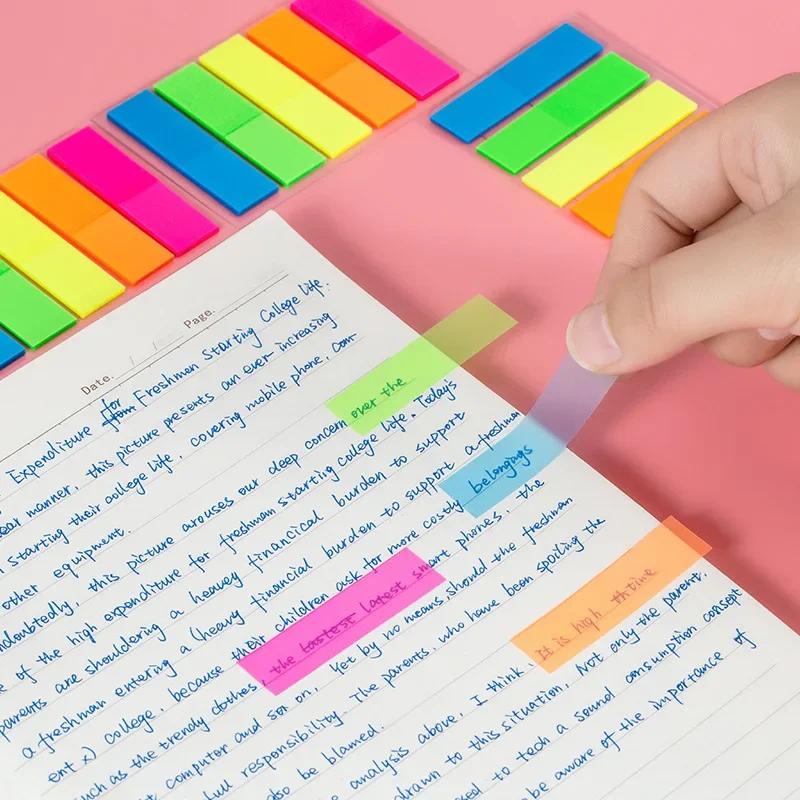 Date. / / Page.
Expenditure for from Freshmen Starting College life.
ear manner, this picture presents an ever-increasing
starting their college life, covering mobile phone, com-
other equipment.
ndoubtedly, this picture arouses our deep concern over the
e of the high expenditure for freshman starting college life. Today's
parents are shouldering a heavy financical burden to support
a freshman entering a (heavy financial burden to support a freshman
ent x) college, because their children ask for more costly belongings
such as the trendy clothes, the lastest latest smart phones, the
t computer and son on, Yet by no means should the freshman
full responsibility. The parents, who have been spoiling the
lso be blamed.
e analysis above, I think, It is high th time
drawn to this situation, Not only the parent,
sed to tech a sound consumption consept
be aware of the importance of